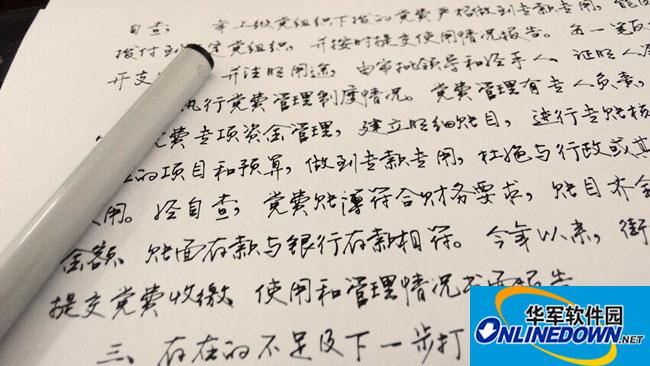 自查，上级党组织下拨的党费严格做到专款专用，能
拨付到党组织，并按时提交使用情况报告。
开支 并注明用途，由审批领导和经手人、证明人
执行党费管理制度情况。党费管理有专人负责，
党费专项资金管理，建立明细账目，进行专账核
的项目和预算，做到专款专用，杜绝与行政或其
用。经自查，党费账簿符合财务要求，账目齐全
金额、账面存款与银行存款相符。今年以来，街
提交党费收缴、使用和管理情况书面报告
三、存在的不足及下一步打
华军软件园
ONLINEDOWN.NET